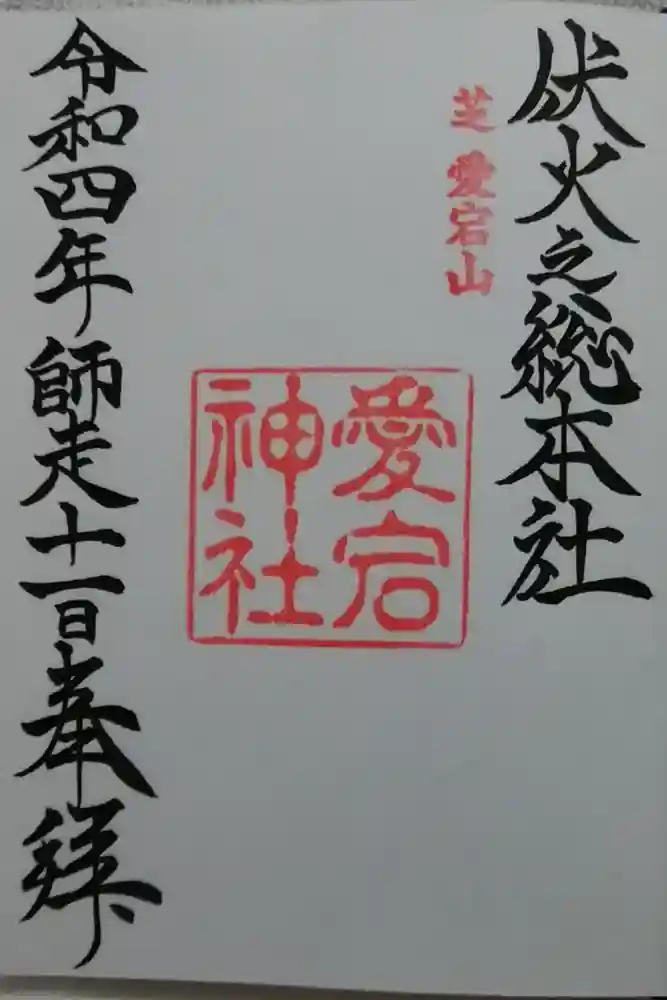 伏火之総本社
芝 愛宕山
愛宕
神社
令和四年 師走十一日 奉拝